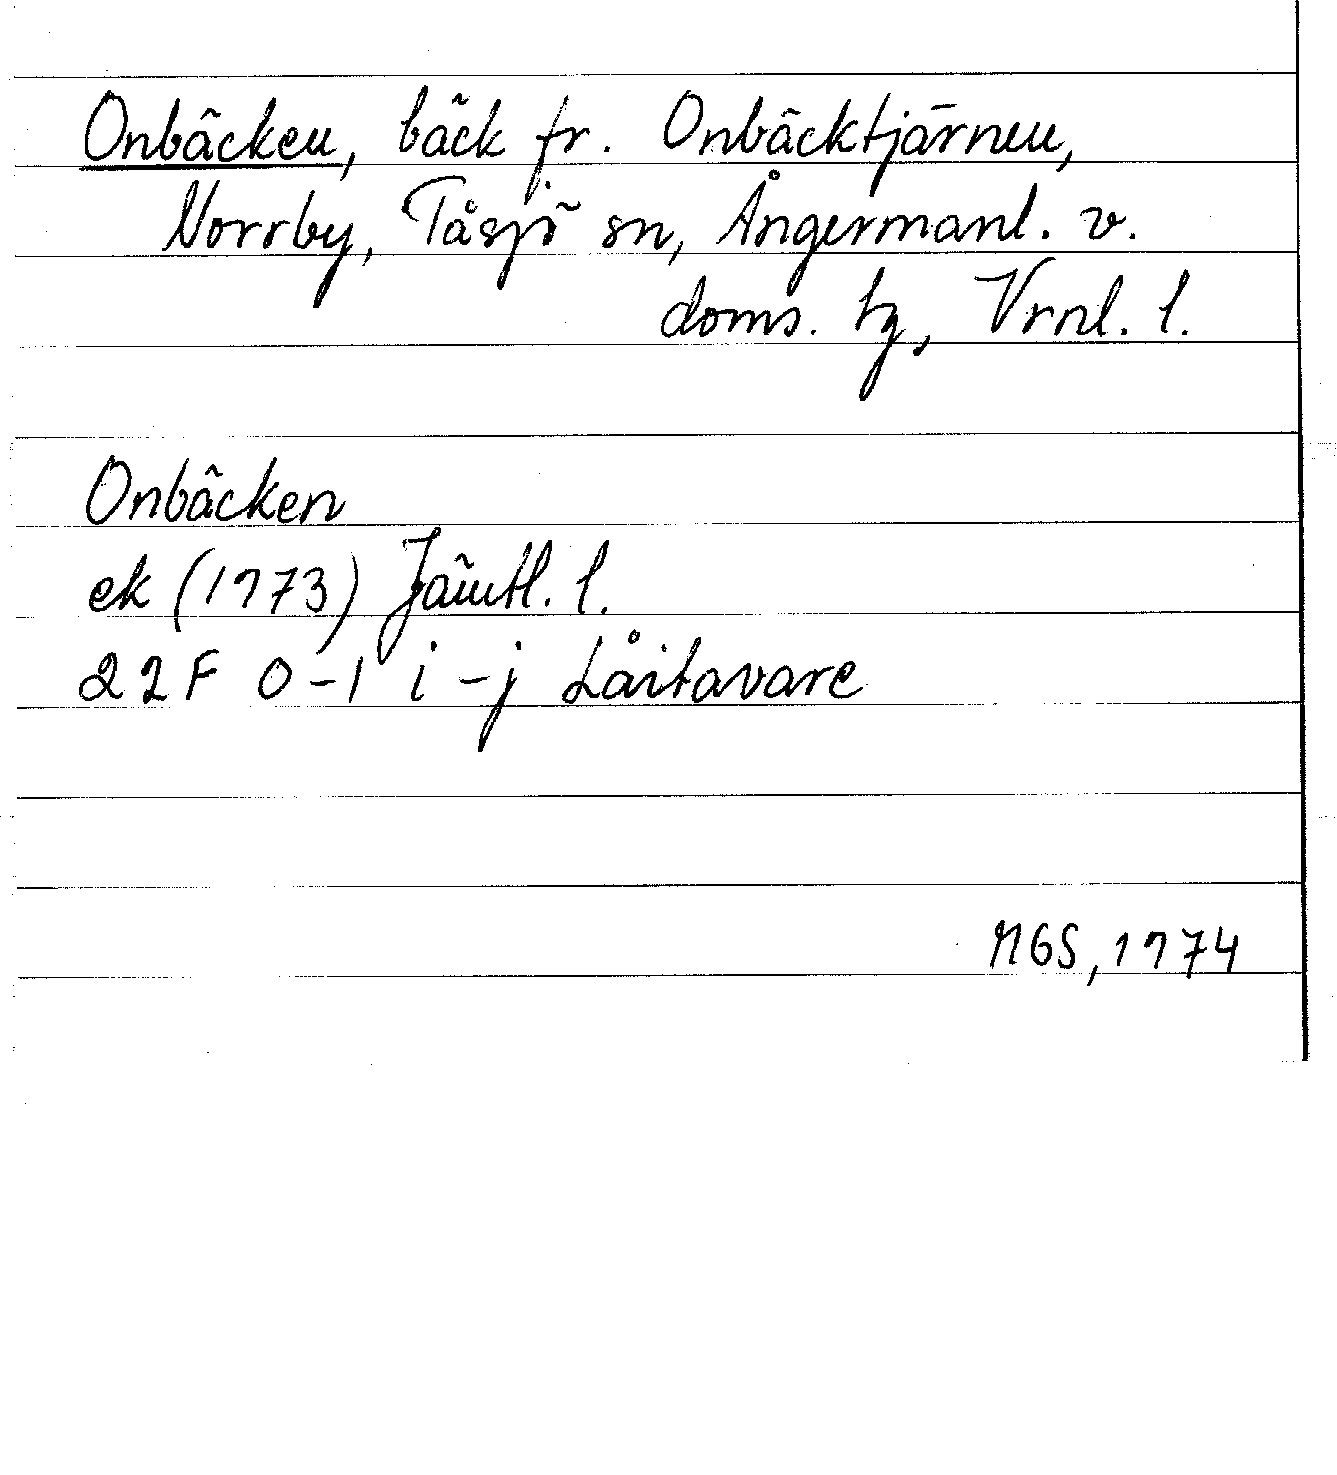 Onbäcken, bäck fr. Onbäcktjärnen,
Norrby, Tåsjö sn, Ångermanl. v.
doms. tg, Vrnl. l.
Onbäcken
ek (1973) Jämtl. l.
22F 0-1 i-j Låitavare
MGS, 1974